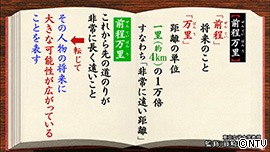 【前程万里】
「前程」
将来のこと
「万里」
距離の単位
一里(約4km)の1万倍
すなわち「非常に遠い距離」
【前程万里】
これから先の道のりが
非常に長く遠いこと
転じて
その人物の将来に
大きな可能性が広がっている
ことを表す
©NTV